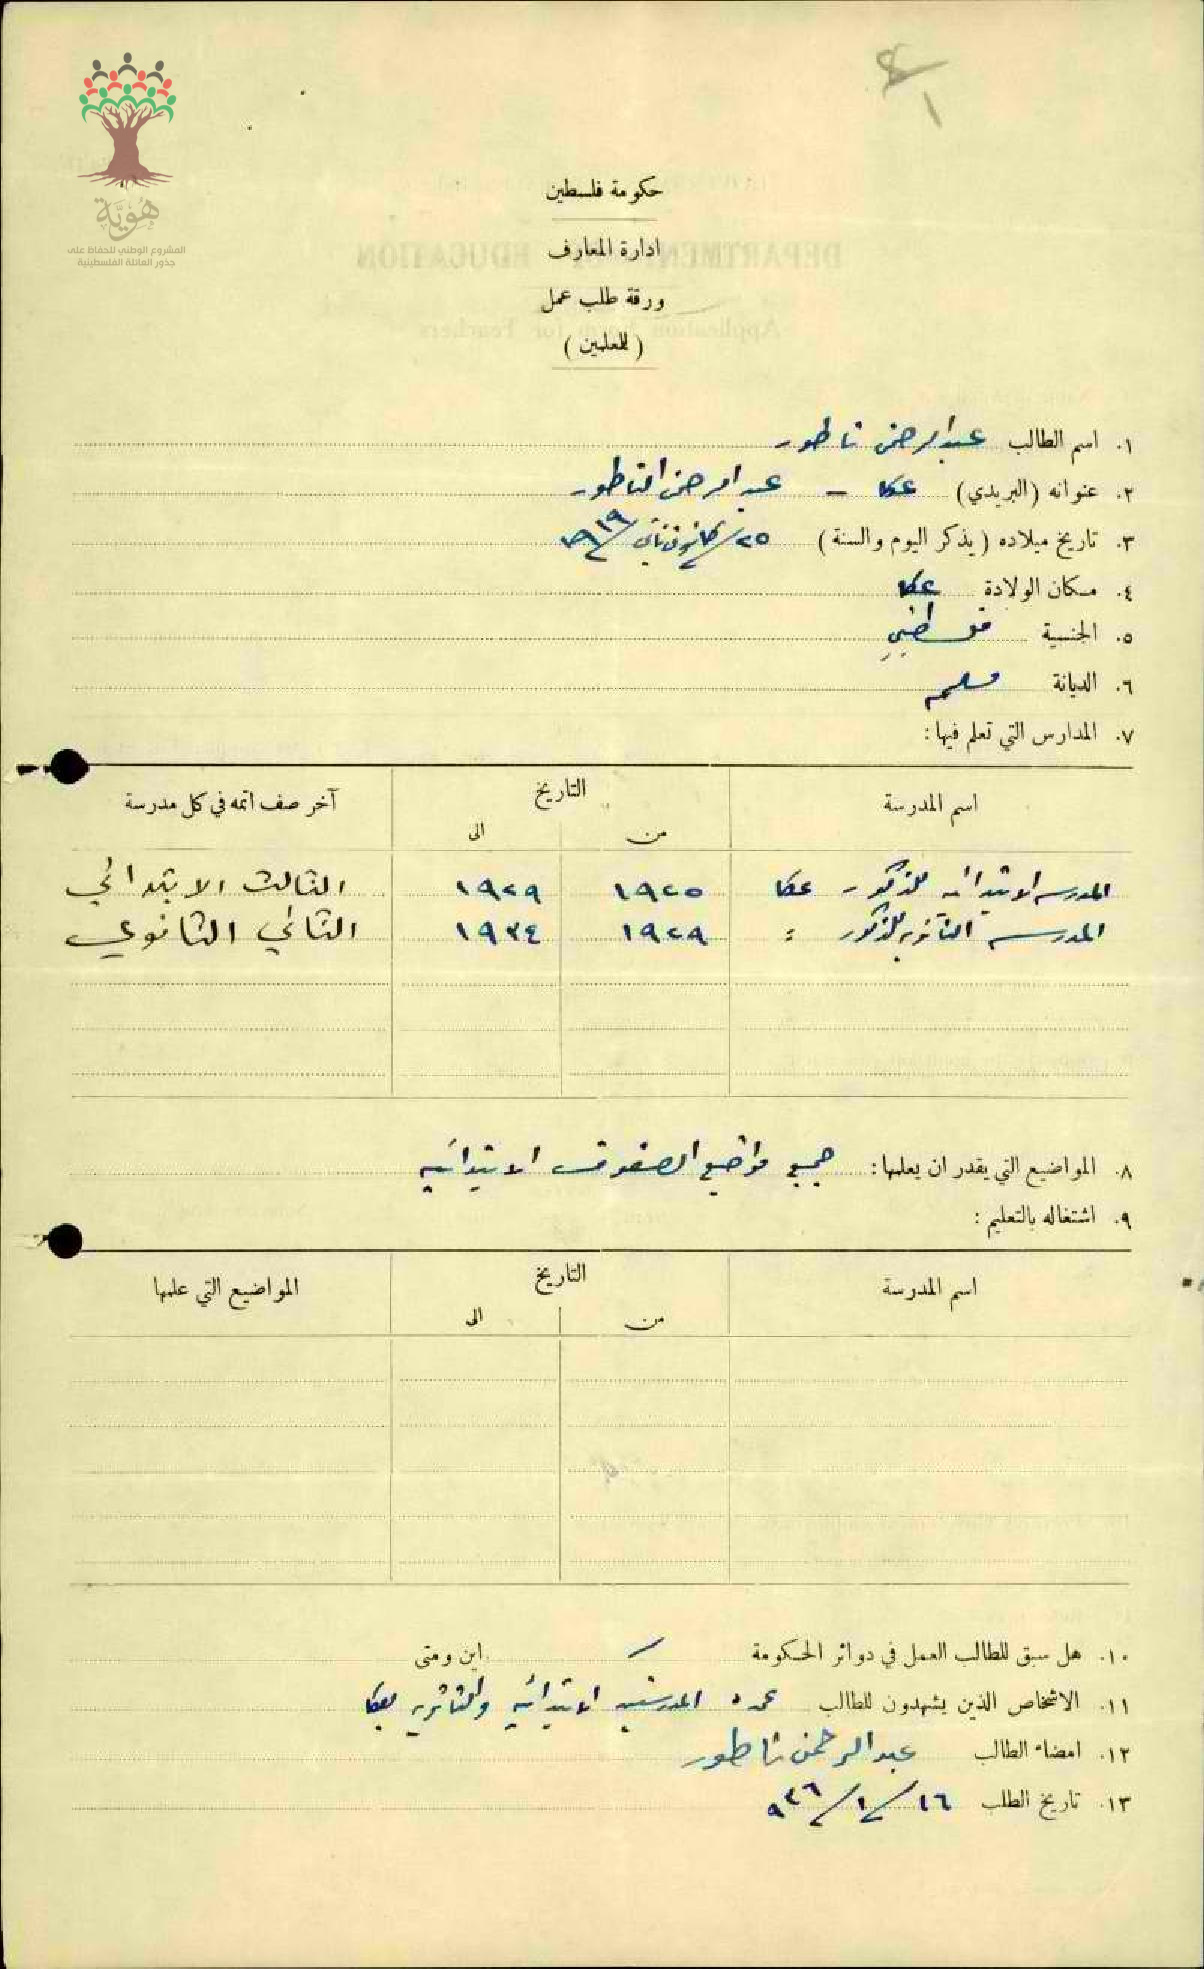 هُوِيَّة
المشروع الوطني للحفاظ على
جذور العائلة الفلسطينية
حكومة فلسطين
ادارة المعارف
DEPARTMENT OF EDUCATION
ورقة طلب عمل
Application Form for Teachers
( للمعلمين )
١. اسم الطالب عبدالرحمن ناطور
٢. عنوانه (البريدي) عكا – عبدالرحمن الناطور
٣. تاريخ ميلاده ( يذكر اليوم والسنة ) ٢٥/كانون ثاني/١٩١٩
٤. مكان الولادة عكا
٥. الجنسية فلسطيني
٦. الديانة مسلم
٧. المدارس التي تعلم فيها :
اسم المدرسة التاريخ آخر صف اتمه في كل مدرسة
من الى
المدرسه الابتدائيه للذكور - عكا ١٩٢٥ ١٩٢٩ الثالث الابتدائي
المدرسه الثانويه للذكور : ١٩٢٩ ١٩٣٤ الثاني الثانوي
٨. المواضيع التي يقدر ان يعلمها : جميع مواضيع الصفوف الابتدائيه
٩. اشتغاله بالتعليم :
اسم المدرسة التاريخ المواضيع التي علمها
من الى
١٠. هل سبق للطالب العمل في دوائر الحكومة / اين ومتى
١١. الاشخاص الذين يشهدون للطالب عمدة المدرستين الابتدائيه والثانويه بعكا
١٢. امضاء الطالب عبدالرحمن ناطور
١٣. تاريخ الطلب ١٦/١/٩٣٦